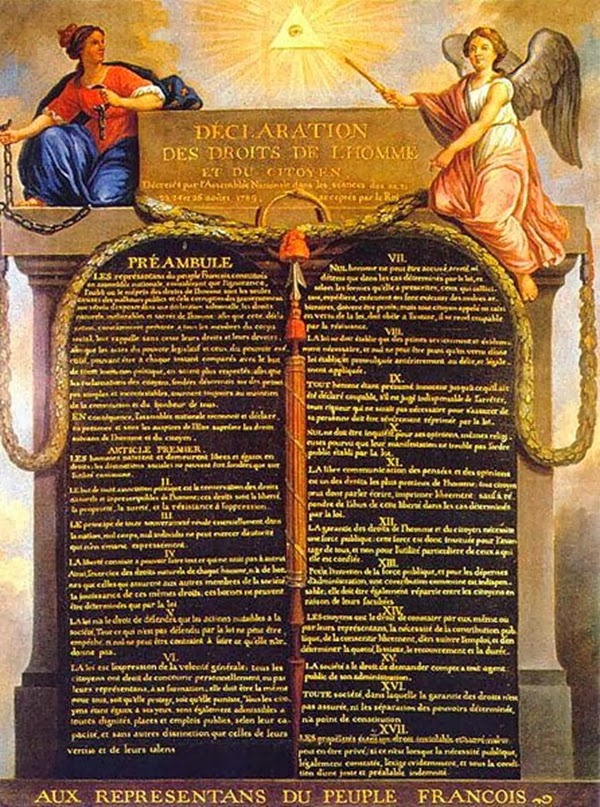 DÉCLARATION
DES DROITS DE L'HOMME
ET DU CITOYEN
Décretés par l'Assemblée Nationale dans les séances des 20, 21,
23, 24 et 26 août 1789, acceptés par le Roi
PRÉAMBULE
LES représentans du peuple François, constitués
en assemblée nationale, considérant que l'ignorance,
l'oubli ou le mépris des droits de l'homme sont les seules
causes des malheurs publics et de la corruption des gouvernemens
ont résolu d'exposer dans une déclaration solemnelle, les droits
naturels, inaliénables et sacrés de l'homme; afin que cette décla-
ration, constamment présente à tous les membres du corps
social, leur rappelle sans cesse leurs droits et leurs devoirs
que les actes du pouvoir législatif et ceux du pouvoir exé-
cutif, pouvant être à chaque instant comparés avec le but
de toute institution politique, en soient plus respectés; afin que
les réclamations des citoyens, fondées désormais sur des princi-
pes simples et incontestables, tournent toujours au maintien
de la constitution et du bonheur de tous.
EN conséquence, l'assemblée nationale reconnoit et déclare,
en présence et sous les auspices de l'Etre suprême les droits
suivans de l'homme et du citoyen.
ARTICLE PREMIER.
LES hommes naissent et demeurent libres et égaux en
droits; les distinctions sociales ne peuvent être fondées que sur
l'utilité commune.
II.
LE but de toute association politique est la conservation des droits
naturels et imprescriptibles de l'homme; ces droits sont la liberté
la propriété, la sureté, et la résistance à l'oppression.
III.
LE principe de toute souveraineté réside essentiellement dans
la nation, nul corps, nul individu ne peut exercer d'autorité
qui n'en émane expressement.
IV.
LA liberté consiste à pouvoir faire tout ce qui ne nuit pas à autrui
Ainsi, l'exercice des droits naturels de chaque homme, n'a de bor-
nes que celles qui assurent aux autres membres de la société
la jouissance de ces mêmes droits; ces bornes ne peuvent
être déterminées que par la loi
V.
LA loi n'a le droit de défendre que les actions nuisibles à la
société. Tout ce qui n'est pas défendu par la loi ne peut être
empêché, et nul ne peut être contraint à faire ce qu'elle n'or-
donne pas.
VI.
LA loi est l'expression de la volonté générale; tous les
citoyens ont droit de concourir personnellement, ou par
leurs représentans, à sa formation; elle doit être la même
pour tous, soit qu'elle protege, soit qu'elle punisse. Tous les cito-
yens étant égaux à ses yeux, sont également admissibles à
toutes dignités, places et emplois publics, selon leur ca-
pacité, et sans autres distinction que celles de leurs
vertus et de leurs talens
VII.
NUL homme ne peut être accusé, arrêté, ni
détenu que dans les cas déterminés par la loi, et
selon les formes qu'elle a prescrites, ceux qui sollici-
tent, expédient, exécutent ou font exécuter des ordres ar-
bitraires, doivent être punis; mais tout citoyen appelé ou saisi
en vertu de la loi, doit obéir à l'instant, il se rend coupable
par la résistance.
VIII.
LA loi ne doit établir que des peines strictement et évidem-
ment nécessaires, et nul ne peut être puni qu'en vertu d'une
loi établie et promulguée antérieurement au délit, et légale-
ment appliquée.
IX.
TOUT homme étant présumé innocent jusqu'à ce qu'il ait
été déclaré coupable, s'il est jugé indispensable de l'arrêter,
toute rigueur qui ne serait pas nécessaire pour s'assurer de
sa personne doit être sévèrement réprimée par la loi.
NUL ne doit être inquiété pour ses opinions, mêmes religi-
euses pourvu que leur manifestation ne trouble pas l'ordre
public établi par la loi.
XI.
LA libre communication des pensées et des opinions
est un des droits les plus precieux de l'homme; tout citoyen
peut donc parler écrire, imprimer librement sauf à ré-
pondre de l'abus de cette liberté dans les cas déterminés
par la loi.
XII.
LA garantie des droits de l'homme et du citoyen nécessite
une force publique; cette force est donc instituée pour l'avan-
tage de tous, et non pour l'utilité particuliere de ceux à qui
elle est confiée.
XIII.
Pour l'entretien de la force publique, et pour les dépenses
d'administration, une contribution commune est indispen-
sable; elle doit être également répartie entre les citoyens en
raison de leurs facultées.
XIV.
LES citoyens ont le droit de constater par eux même ou
par leurs représentans, la nécessité de la contribution pub-
lique, de la consentir librement, d'en suivre l'emploi, et d'en
déterminer la quotité, l'assiette, le recouvrement et la durée.
XV.
LA société a le droit de demander compte à tout agent
public de son administration.
XVI.
TOUTE société, dans laquelle la garantie des droits n'est
pas assurée, ni les séparation des pouvoirs déterminée,
n'a point de constitution
XVII.
LES propriétés étant un droit inviolable et sacré, nul ne
peut en être privé, si ce n'est lorsque la nécessité publique,
légalement constatée, l'exige évidemment, et sous la condi-
tion d'une juste et préalable indemnité.
AUX REPRESENTANS DU PEUPLE FRANCOIS